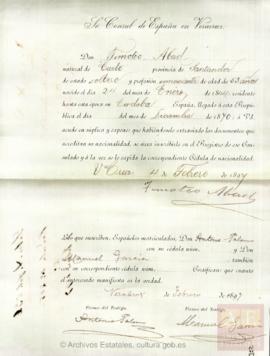 Sr. Consul de España en Veracruz
Don Timoteo Abad
natural de provincia de Santander
de estado soltero y profesion comerciante de edad de años
nacido el dia 24 del mes de Enero de residente
hasta esta época en Cordoba España, llegado á esta Repú-
blica el dia del mes de Diciembre de 1870, á VS.
acude en súplica y expone que habiéndose extraviado los documentos que
acreditan su nacionalidad, se sirva inscribirle en el Registro de ese Con-
sulado y á la vez se le expida la correspondiente Cédula de nacionalidad.
V. Cruz 4 de Febrero de 1897
Timoteo Abad
Los que suscriben, Españoles matriculados, Don Antonio
con su cédula núm. y Don
Manuel García también
con su correspondiente cédula núm. Certifican: que cuanto
el interesado manifiesta es la verdad.
Veracruz Febrero de 1897
Firma del Testigo, Firma del Testigo,
Antonio Manuel García
© Archivos Estatales, cultura.gob.es